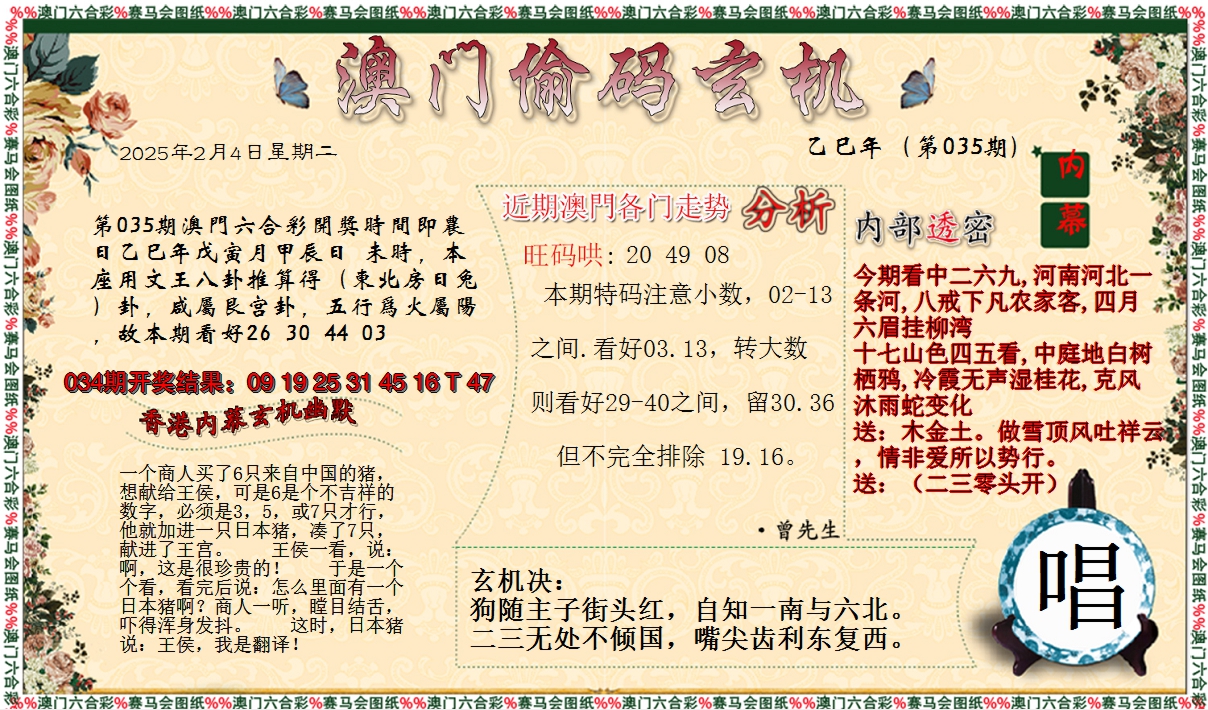 %%澳门六合彩%赛马会图纸%%澳门六合彩%赛马会图纸%%澳门六合彩%赛马会图纸%%澳门六合彩%赛马会图纸%%澳门六合彩%赛马会图纸%%澳门六合彩%赛马会图纸%%
澳门偷码玄机
2025年2月4日星期二
乙巳年（第035期）
内
幕
第035期澳門六合彩開獎時間即農
日乙巳年戊寅月甲辰日 未時，本
座用文王八卦推算得（東北房日兔
）卦，咸屬艮宫卦，五行爲火屬陽
，故本期看好26 30 44 03
034期开奖结果：09 19 25 31 45 16 T 47
香港内幕玄机幽默
一个商人买了6只来自中国的猪，
想献给王侯，可是6是个不吉祥的
数字，必须是3，5，或7只才行，
他就加进一只日本猪，凑了7只，
献进了王宫。 王侯一看，说：
啊，这是很珍贵的！ 于是一个
个看，看完后说：怎么里面有一个
日本猪啊？商人一听，瞠目结舌，
吓得浑身发抖。 这时，日本猪
说：王侯，我是翻译！
近期澳門各门走势 分析
旺码哄：20 49 08
本期特码注意小数，02-13
之间.看好03.13，转大数
则看好29-40之间，留30.36
但不完全排除 19.16。
·曾先生
内部透密
今期看中二六九,河南河北一
条河,八戒下凡农家客,四月
六眉挂柳湾
十七山色四五看,中庭地白树
栖鸦,冷霞无声湿桂花,克风
沐雨蛇变化
送：木金土。做雪顶风吐祥云
，情非爱所以势行。
送：（二三零头开）
玄机决：
狗随主子街头红，自知一南与六北。
二三无处不倾国，嘴尖齿利东复西。
唱
%%澳门六合彩%赛马会图纸%%澳门六合彩%赛马会图纸%%澳门六合彩%赛马会图纸%%澳门六合彩%赛马会图纸%%澳门六合彩%赛马会图纸%%澳门六合彩%赛马会图纸%%